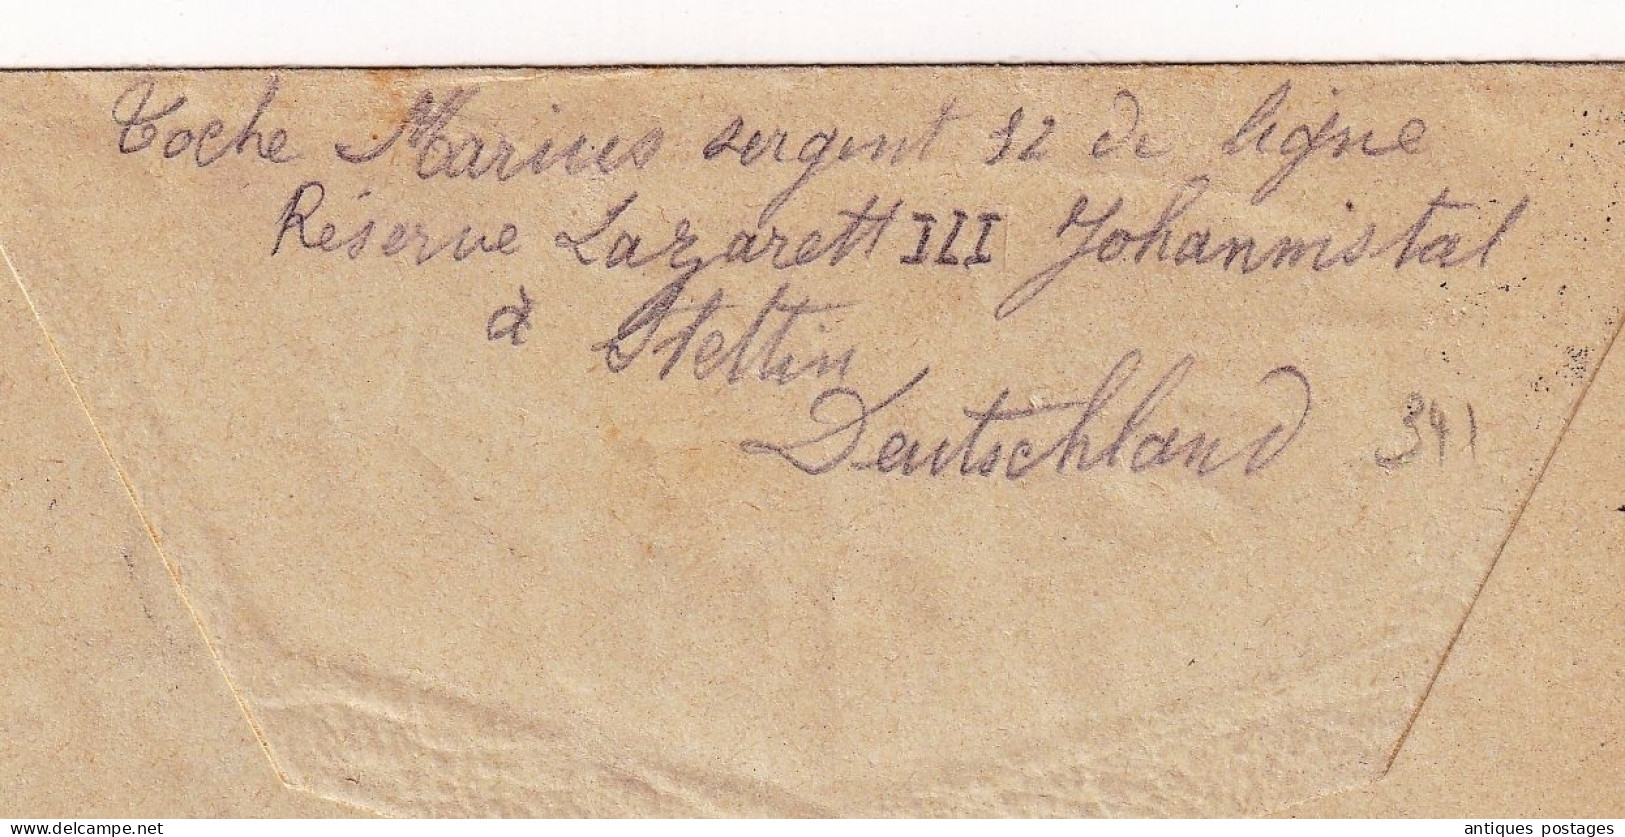 Toche Marius sergent 92 de ligne
Réserve Lazarett III Johannistal
à Stettin
Deutschland 341
antiques postages delcampe.net